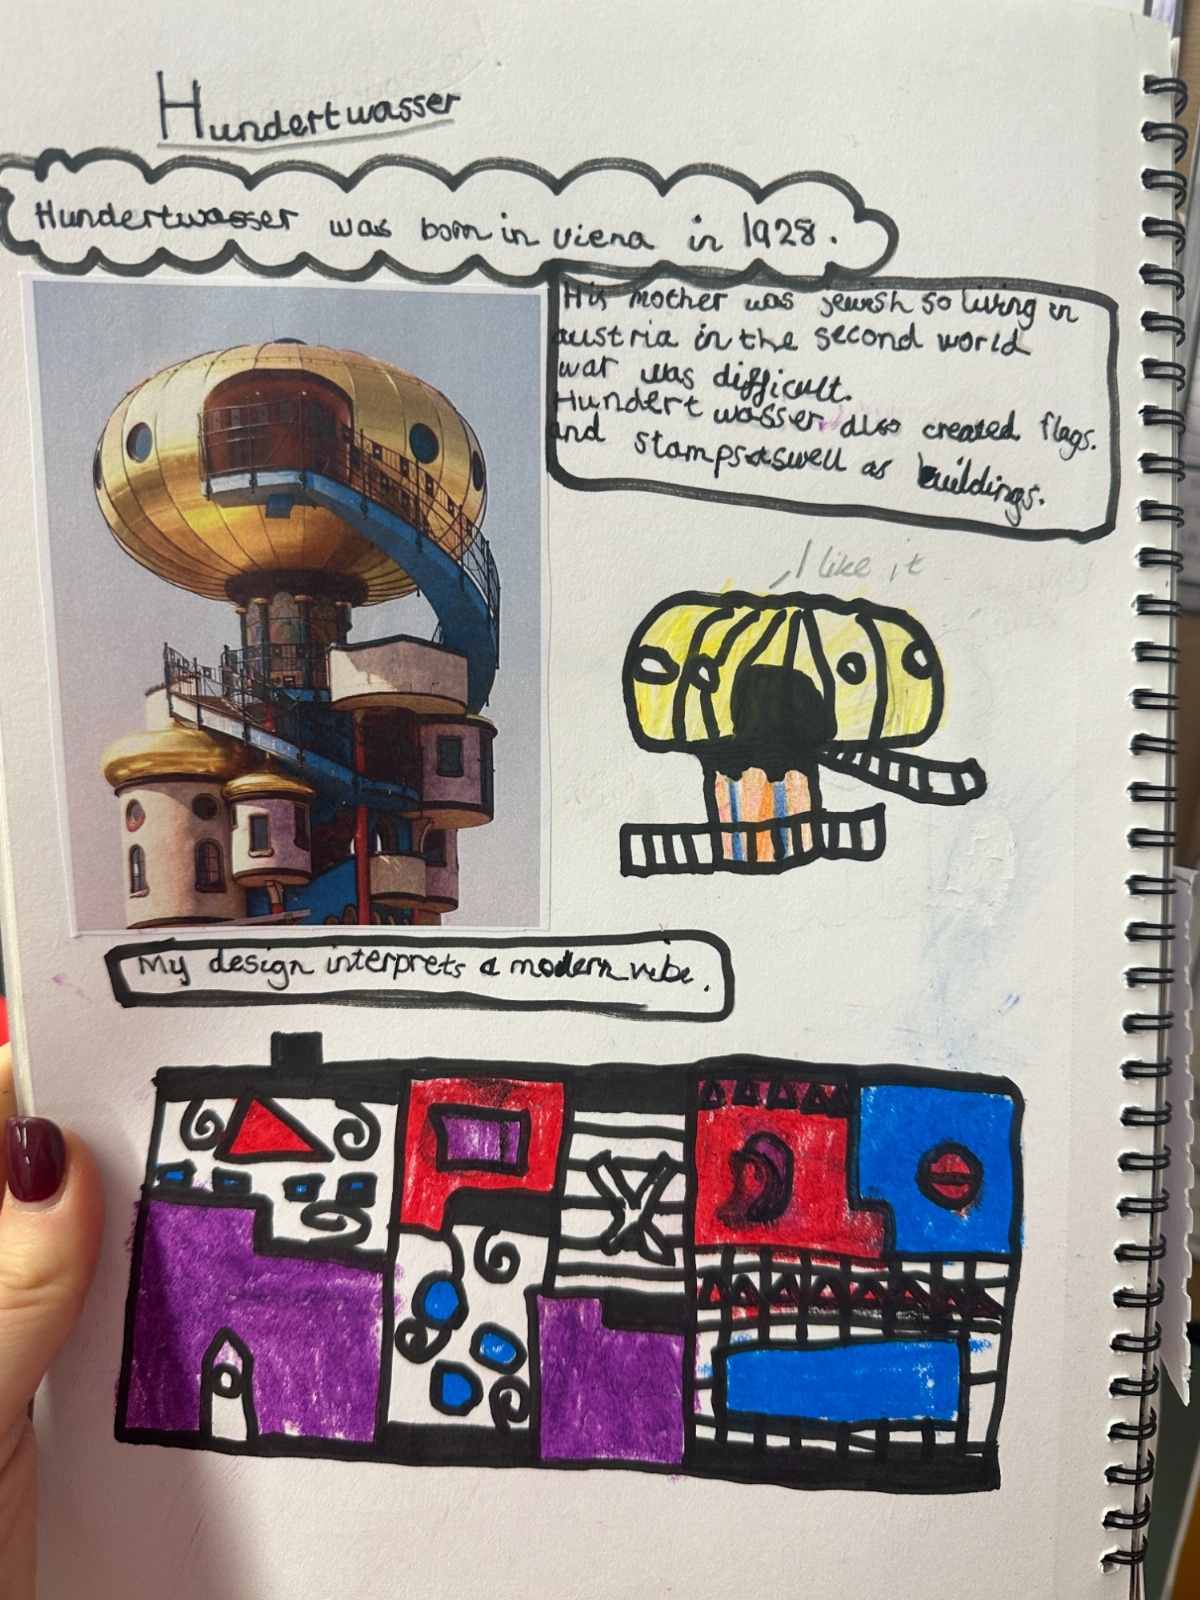 Hundertwasser
Hundertwasser was born in viena in 1928.
His mother was jewish so living in
austria in the second world
war was difficult.
Hundertwasser also created flags.
and stamps aswell as buildings.
I like it
My design interprets a modern vibe.